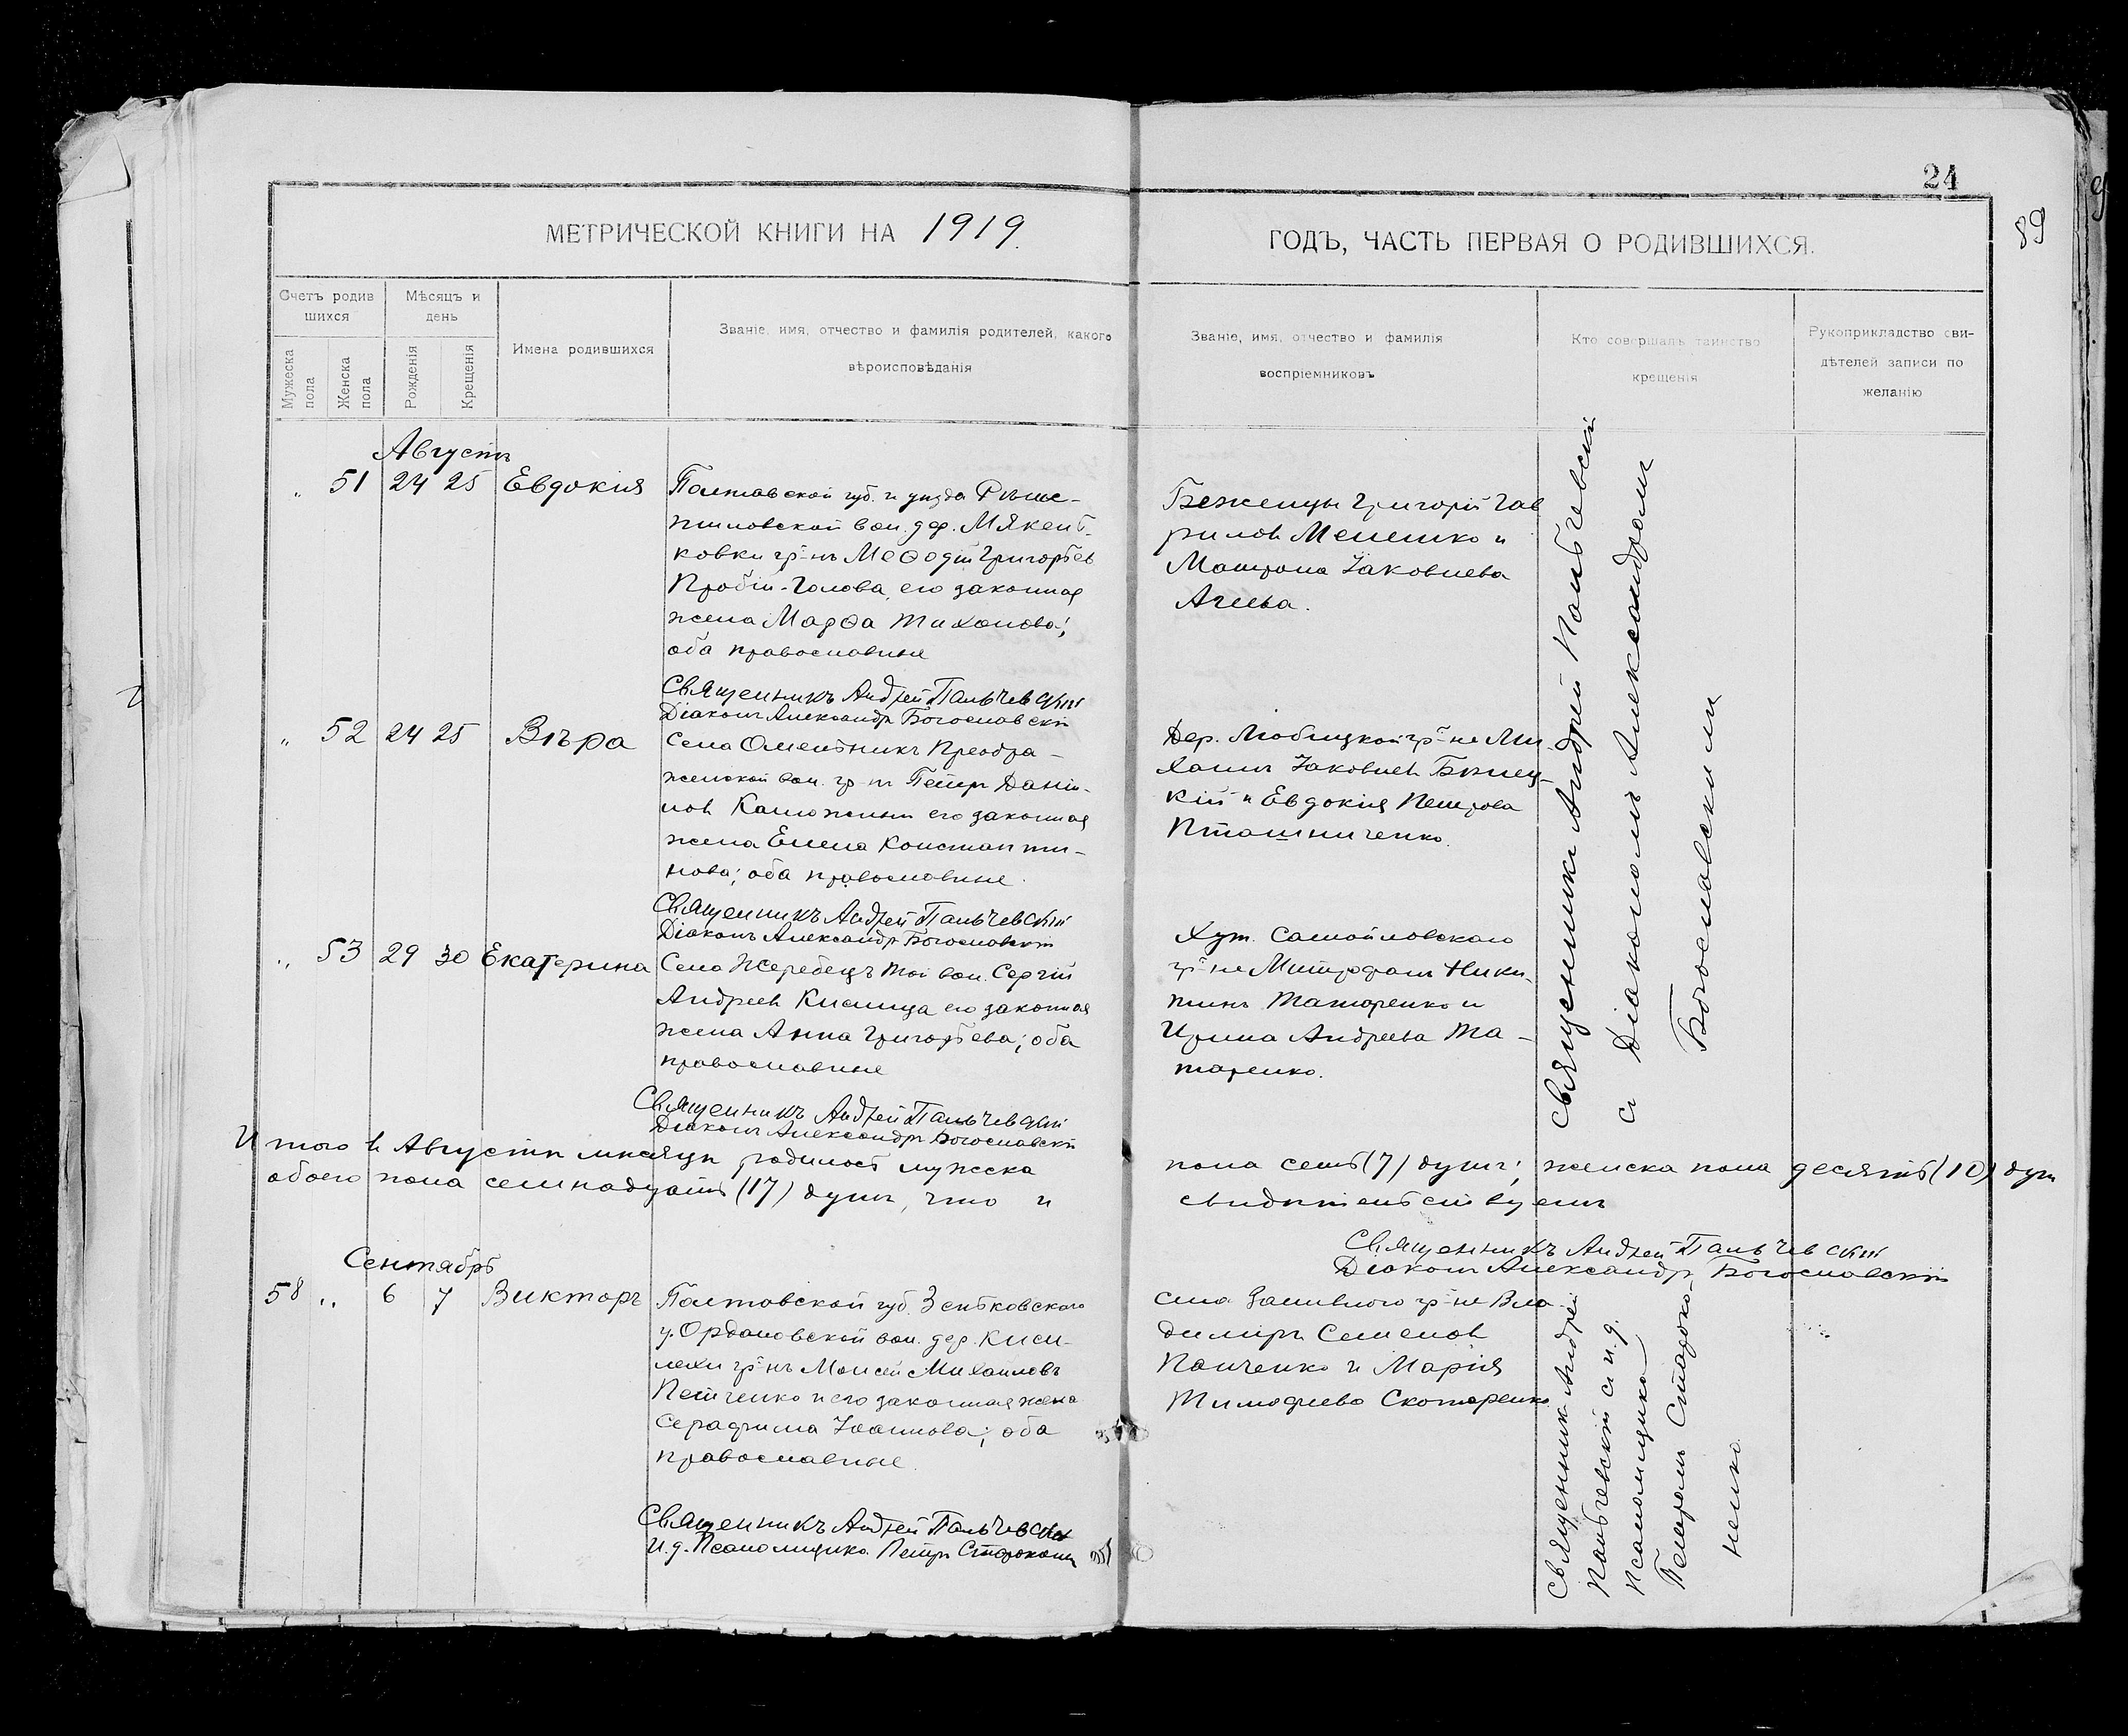 24
89
МЕТРИЧЕСКОЙ КНИГИ НА 1919.
ГОДЪ, ЧАСТЬ ПЕРВАЯ О РОДИВШИХСЯ.
Счетъ родив
шихся
Мѣсяцъ и
день
Мужеска
пола
Женска
пола
Рожденія
Крещенія
Имена родившихся
Званіе, имя, отчество и фамилія родителей, какого
вѣроисповѣданія
Званіе, имя, отчество и фамилія
воспріемниковъ
Кто совершалъ таинство
крещенія
Рукоприкладство сви-
дѣтелей записи по
желанію
Августъ
„ 51 24 25 Евдокія
Полтавской губ. и уѣзда Рѣше-
тиловской вол. дер. Мякень-
ковки гр-нъ Меѳодій Григорьев
Пробій-Голова, его законная
жена Марѳа Тихонова;
оба православные
Священникъ Андрей Пальчевскій
Діаконъ Александръ Богословскій
Беженцы Григорій Гав
риловъ Мелешко и
Матрона Іаковлева
Агеева.
„ 52 24 25 Вѣра
Села Омельникъ Преобра-
женской вол. гр-нъ Петръ Даніи-
ловъ Каложный его законная
жена Елена Константи-
нова; оба православные.
Священникъ Андрей Пальчевскій
Діаконъ Александръ Богословскій
Дер. Любицкой гр-не Ми-
хаилъ Іаковлевъ
кій и Евдокія Петрова
Пташниченко.
„ 53 29 30 Екатерина
Села Жеребецъ той вол. Сергій
Андреевъ Кислица его законная
жена Анна Григорьева; оба
православные
Священникъ Андрей Пальчевскій
Діаконъ Александръ Богословскій
Хут. Самойловскаго
гр-не Митрофанъ Ники-
тинъ Татаренко и
Ирина Андреева Та-
таренко.
Священникъ Андрей Пальчевскій
съ Діакономъ Александромъ
Богословскимъ
Итого въ Августѣ мѣсяцѣ родилось мужска пола семь (7) душъ; женска пола десять (10) душ
обоего пола семнадцать (17) душъ, что и свидѣтельствуемъ
Священникъ Андрей Пальчевскій
Діаконъ Александръ Богословскій
Сентябрь
58 „ 6 7 Викторъ
Полтовской губ. Зеньковскаго
у. Ордановской вол. дер. Киси-
лехи гр-нъ Моисей Михаиловъ
Петченко и его законная жена
Серафима Іоаннова; оба
православные.
Священникъ Андрей Пальчевскій
И.д. Псаломщика Петръ
села Заливного гр-не Вла-
димиръ Семеновъ
Панченко и Марія
Тимофиева Скотаренко
Священникъ Андрей
Пальчевскій съ и.д.
псаломщика
Петромъ Стадоко-
ненко.